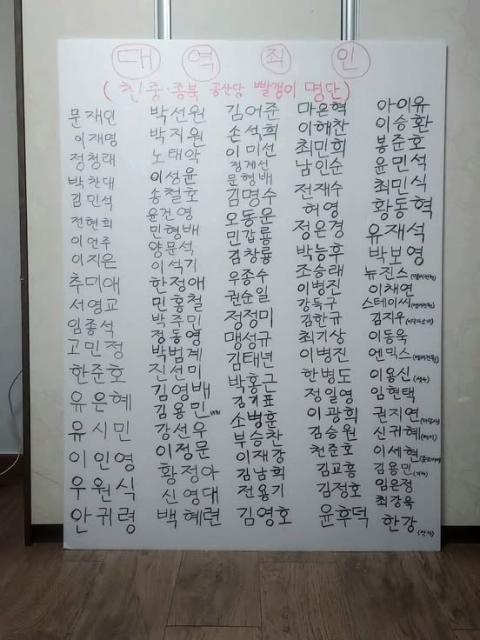 대 역 죄 인
(친중·종북 공산당 빨갱이 명단)
문재인
이재명
정청래
박찬대
김민석
전현희
이언주
이지은
추미애
서영교
임종석
고민정
한준호
유은혜
유시민
이인영
우원식
안귀령
박선원
박지원
노태악
이성윤
송철호
윤건영
민형배
양문석
이석기
한정애
민홍철
박주민
정동영
박범계
진선미
김영배
김용민
강선우
이정문
황정아
신영대
백혜련
김어준
손석희
이미선
정계선
문형배
김명수
오동운
민갑룡
김창룡
우종수
권순일
정정미
맹성규
김태년
박홍근
김기표
소병훈
부승찬
이재강
김남희
전용기
김영호
마은혁
이해찬
최민희
남인순
전재수
허영
정은경
박능후
조승래
이병진
강득구
김한규
최기상
이병진
한병도
정일영
이광희
김승원
천준호
김교흥
김정호
윤후덕
아이유
이승환
봉준호
윤민석
최민식
황동혁
유재석
박보영
뉴진스
이채연
스테이씨
김지우
이동욱
엔믹스
이용신
임현택
권지연
신규혜
이세현
김용민
임은정
최강욱
한강